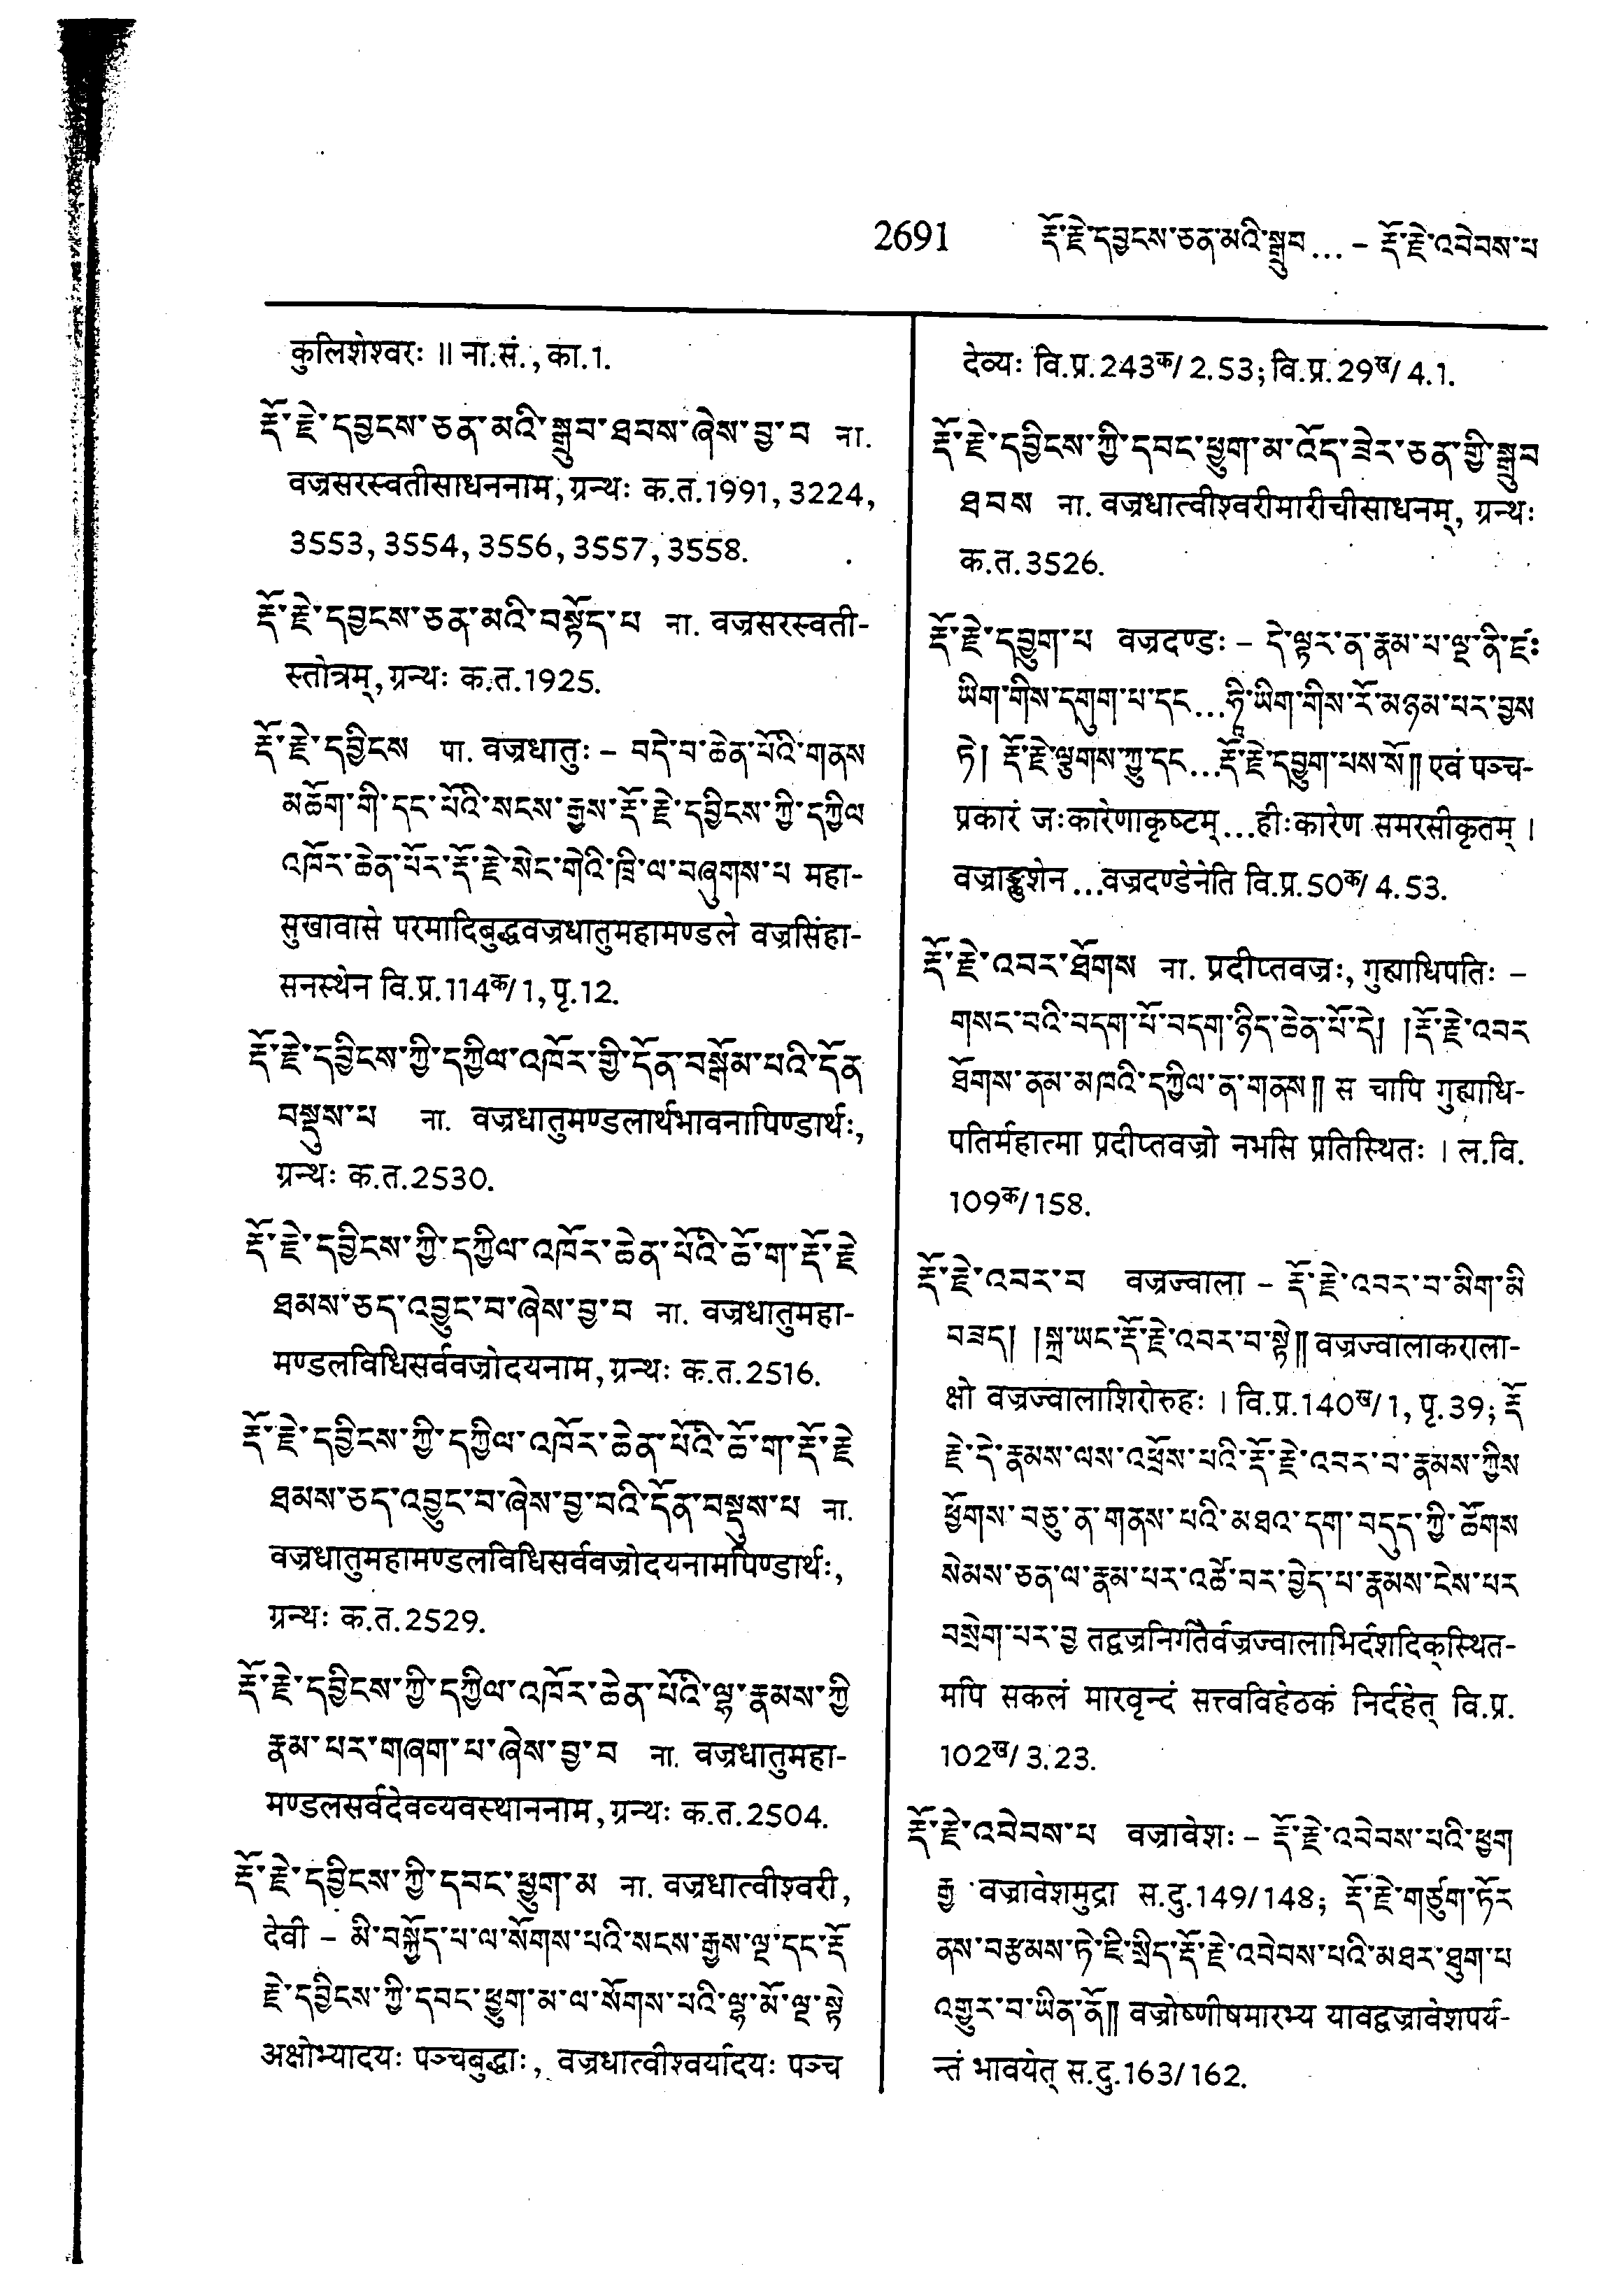 2691 རྡོ་རྗེ་དབྱངས་ཅན་མའི་སྒྲུབ... – རྡོ་རྗེ་འབེབས་པ
कुलिशेश्वरः ॥ ना.सं., का.1.
རྡོ་རྗེ་དབྱངས་ཅན་མའི་སྒྲུབ་ཐབས་ཞེས་བྱ་བ ना.
वज्रसरस्वतीसाधननाम, ग्रन्थः क.त.1991, 3224,
3553, 3554, 3556, 3557, 3558.
རྡོ་རྗེ་དབྱངས་ཅན་མའི་བསྟོད་པ ना. वज्रसरस्वती-
स्तोत्रम्, ग्रन्थः क.त.1925.
རྡོ་རྗེ་དབྱིངས पा. वज्रधातुः – བདེ་བ་ཆེན་པོའི་གནས
མཆོག་གི་དང་པོའི་སངས་རྒྱས་རྡོ་རྗེ་དབྱིངས་ཀྱི་དཀྱིལ
འཁོར་ཆེན་པོར་རྡོ་རྗེ་སེང་གེའི་ཁྲི་ལ་བཞུགས་པ महा-
सुखावासे परमादिबुद्धवज्रधातुमहामण्डले वज्रसिंहा-
सनस्थेन वि.प्र.114क/1, पृ.12.
རྡོ་རྗེ་དབྱིངས་ཀྱི་དཀྱིལ་འཁོར་གྱི་དོན་བསྒོམ་པའི་དོན
བསྡུས་པ ना. वज्रधातुमण्डलार्थभावनापिण्डार्थः,
ग्रन्थः क.त.2530.
རྡོ་རྗེ་དབྱིངས་ཀྱི་དཀྱིལ་འཁོར་ཆེན་པོའི་ཆོ་ག་རྡོ་རྗེ
ཐམས་ཅད་འབྱུང་བ་ཞེས་བྱ་བ ना. वज्रधातुमहा-
मण्डलविधिसर्ववज्रोदयनाम, ग्रन्थः क.त.2516.
རྡོ་རྗེ་དབྱིངས་ཀྱི་དཀྱིལ་འཁོར་ཆེན་པོའི་ཆོ་ག་རྡོ་རྗེ
ཐམས་ཅད་འབྱུང་བ་ཞེས་བྱ་བའི་དོན་བསྡུས་པ ना.
वज्रधातुमहामण्डलविधिसर्ववज्रोदयनामपिण्डार्थः,
ग्रन्थः क.त.2529.
རྡོ་རྗེ་དབྱིངས་ཀྱི་དཀྱིལ་འཁོར་ཆེན་པོའི་ལྷ་རྣམས་ཀྱི
རྣམ་པར་གཞག་པ་ཞེས་བྱ་བ ना. वज्रधातुमहा-
मण्डलसर्वदेवव्यवस्थाननाम, ग्रन्थः क.त.2504.
རྡོ་རྗེ་དབྱིངས་ཀྱི་དབང་ཕྱུག་མ ना. वज्रधात्वीश्वरी,
देवी – མི་བསྐྱོད་པ་ལ་སོགས་པའི་སངས་རྒྱས་ལྔ་དང་རྡོ
རྗེ་དབྱིངས་ཀྱི་དབང་ཕྱུག་མ་ལ་སོགས་པའི་ལྷ་མོ་ལྔ་སྟེ
अक्षोभ्यादयः पञ्चबुद्धाः, वज्रधात्वीश्वर्यादयः पञ्च
देव्यः वि.प्र.243क/2.53; वि.प्र.29ख/4.1.
རྡོ་རྗེ་དབྱིངས་ཀྱི་དབང་ཕྱུག་མ་འོད་ཟེར་ཅན་གྱི་སྒྲུབ
ཐབས ना. वज्रधात्वीश्वरीमारीचीसाधनम्, ग्रन्थः
क.त.3526.
རྡོ་རྗེ་དབྱུག་པ वज्रदण्डः – དེ་ལྟར་ན་རྣམ་པ་ལྔ་ནི་ཛཿ
ཡིག་གིས་དགུག་པ་དང...ཧཱི་ཡིག་གིས་རོ་མཉམ་པར་བྱས
ཏེ། རྡོ་རྗེ་ལྕགས་ཀྱུ་དང...རྡོ་རྗེ་དབྱུག་པས་སོ།། एवं पञ्च-
प्रकारं जःकारेणाकृष्टम्...हीःकारेण समरसीकृतम् ।
वज्राङ्कुशेन...वज्रदण्डेनेति वि.प्र.50क/4.53.
རྡོ་རྗེ་འབར་ཐོགས ना. प्रदीप्तवज्रः, गुह्याधिपतिः –
གསང་བའི་བདག་པོ་བདག་ཉིད་ཆེན་པོ་དེ། །རྡོ་རྗེ་འབར
ཐོགས་ནམ་མཁའི་དཀྱིལ་ན་གནས།། स चापि गुह्याधि-
पतिर्महात्मा प्रदीप्तवज्रो नभसि प्रतिस्थितः । ल.वि.
109क/158.
རྡོ་རྗེ་འབར་བ वज्रज्वाला – རྡོ་རྗེ་འབར་བ་མིག་མི
བཟད། །སྐྲ་ཡང་རྡོ་རྗེ་འབར་བ་སྟེ།། वज्रज्वालाकराला-
क्षो वज्रज्वालाशिरोरुहः । वि.प्र.140ख/1, पृ.39; རྡོ
རྗེ་དེ་རྣམས་ལས་འཕྲོས་པའི་རྡོ་རྗེ་འབར་བ་རྣམས་ཀྱིས
ཕྱོགས་བཅུ་ན་གནས་པའི་མཐའ་དག་བདུད་ཀྱི་ཚོགས
སེམས་ཅན་ལ་རྣམ་པར་འཚེ་བར་བྱེད་པ་རྣམས་ངེས་པར
བསྲེག་པར་བྱ तद्वज्रनिर्गतैर्वज्रज्वालाभिर्दशदिक्स्थित-
मपि सकलं मारवृन्दं सत्त्वविहेठकं निर्दहेत् वि.प्र.
102ख/3.23.
རྡོ་རྗེ་འབེབས་པ वज्रावेशः – རྡོ་རྗེ་འབེབས་པའི་ཕྱག
རྒྱ वज्रावेशमुद्रा स.दु.149/148; རྡོ་རྗེ་གཙུག་ཏོར
ནས་བརྩམས་ཏེ་ཇི་སྲིད་རྡོ་རྗེ་འབེབས་པའི་མཐར་ཐུག་པ
འགྱུར་བ་ཡིན་ནོ།། वज्रोष्णीषमारभ्य यावद्वज्रावेशपर्य-
न्तं भावयेत् स.दु.163/162.